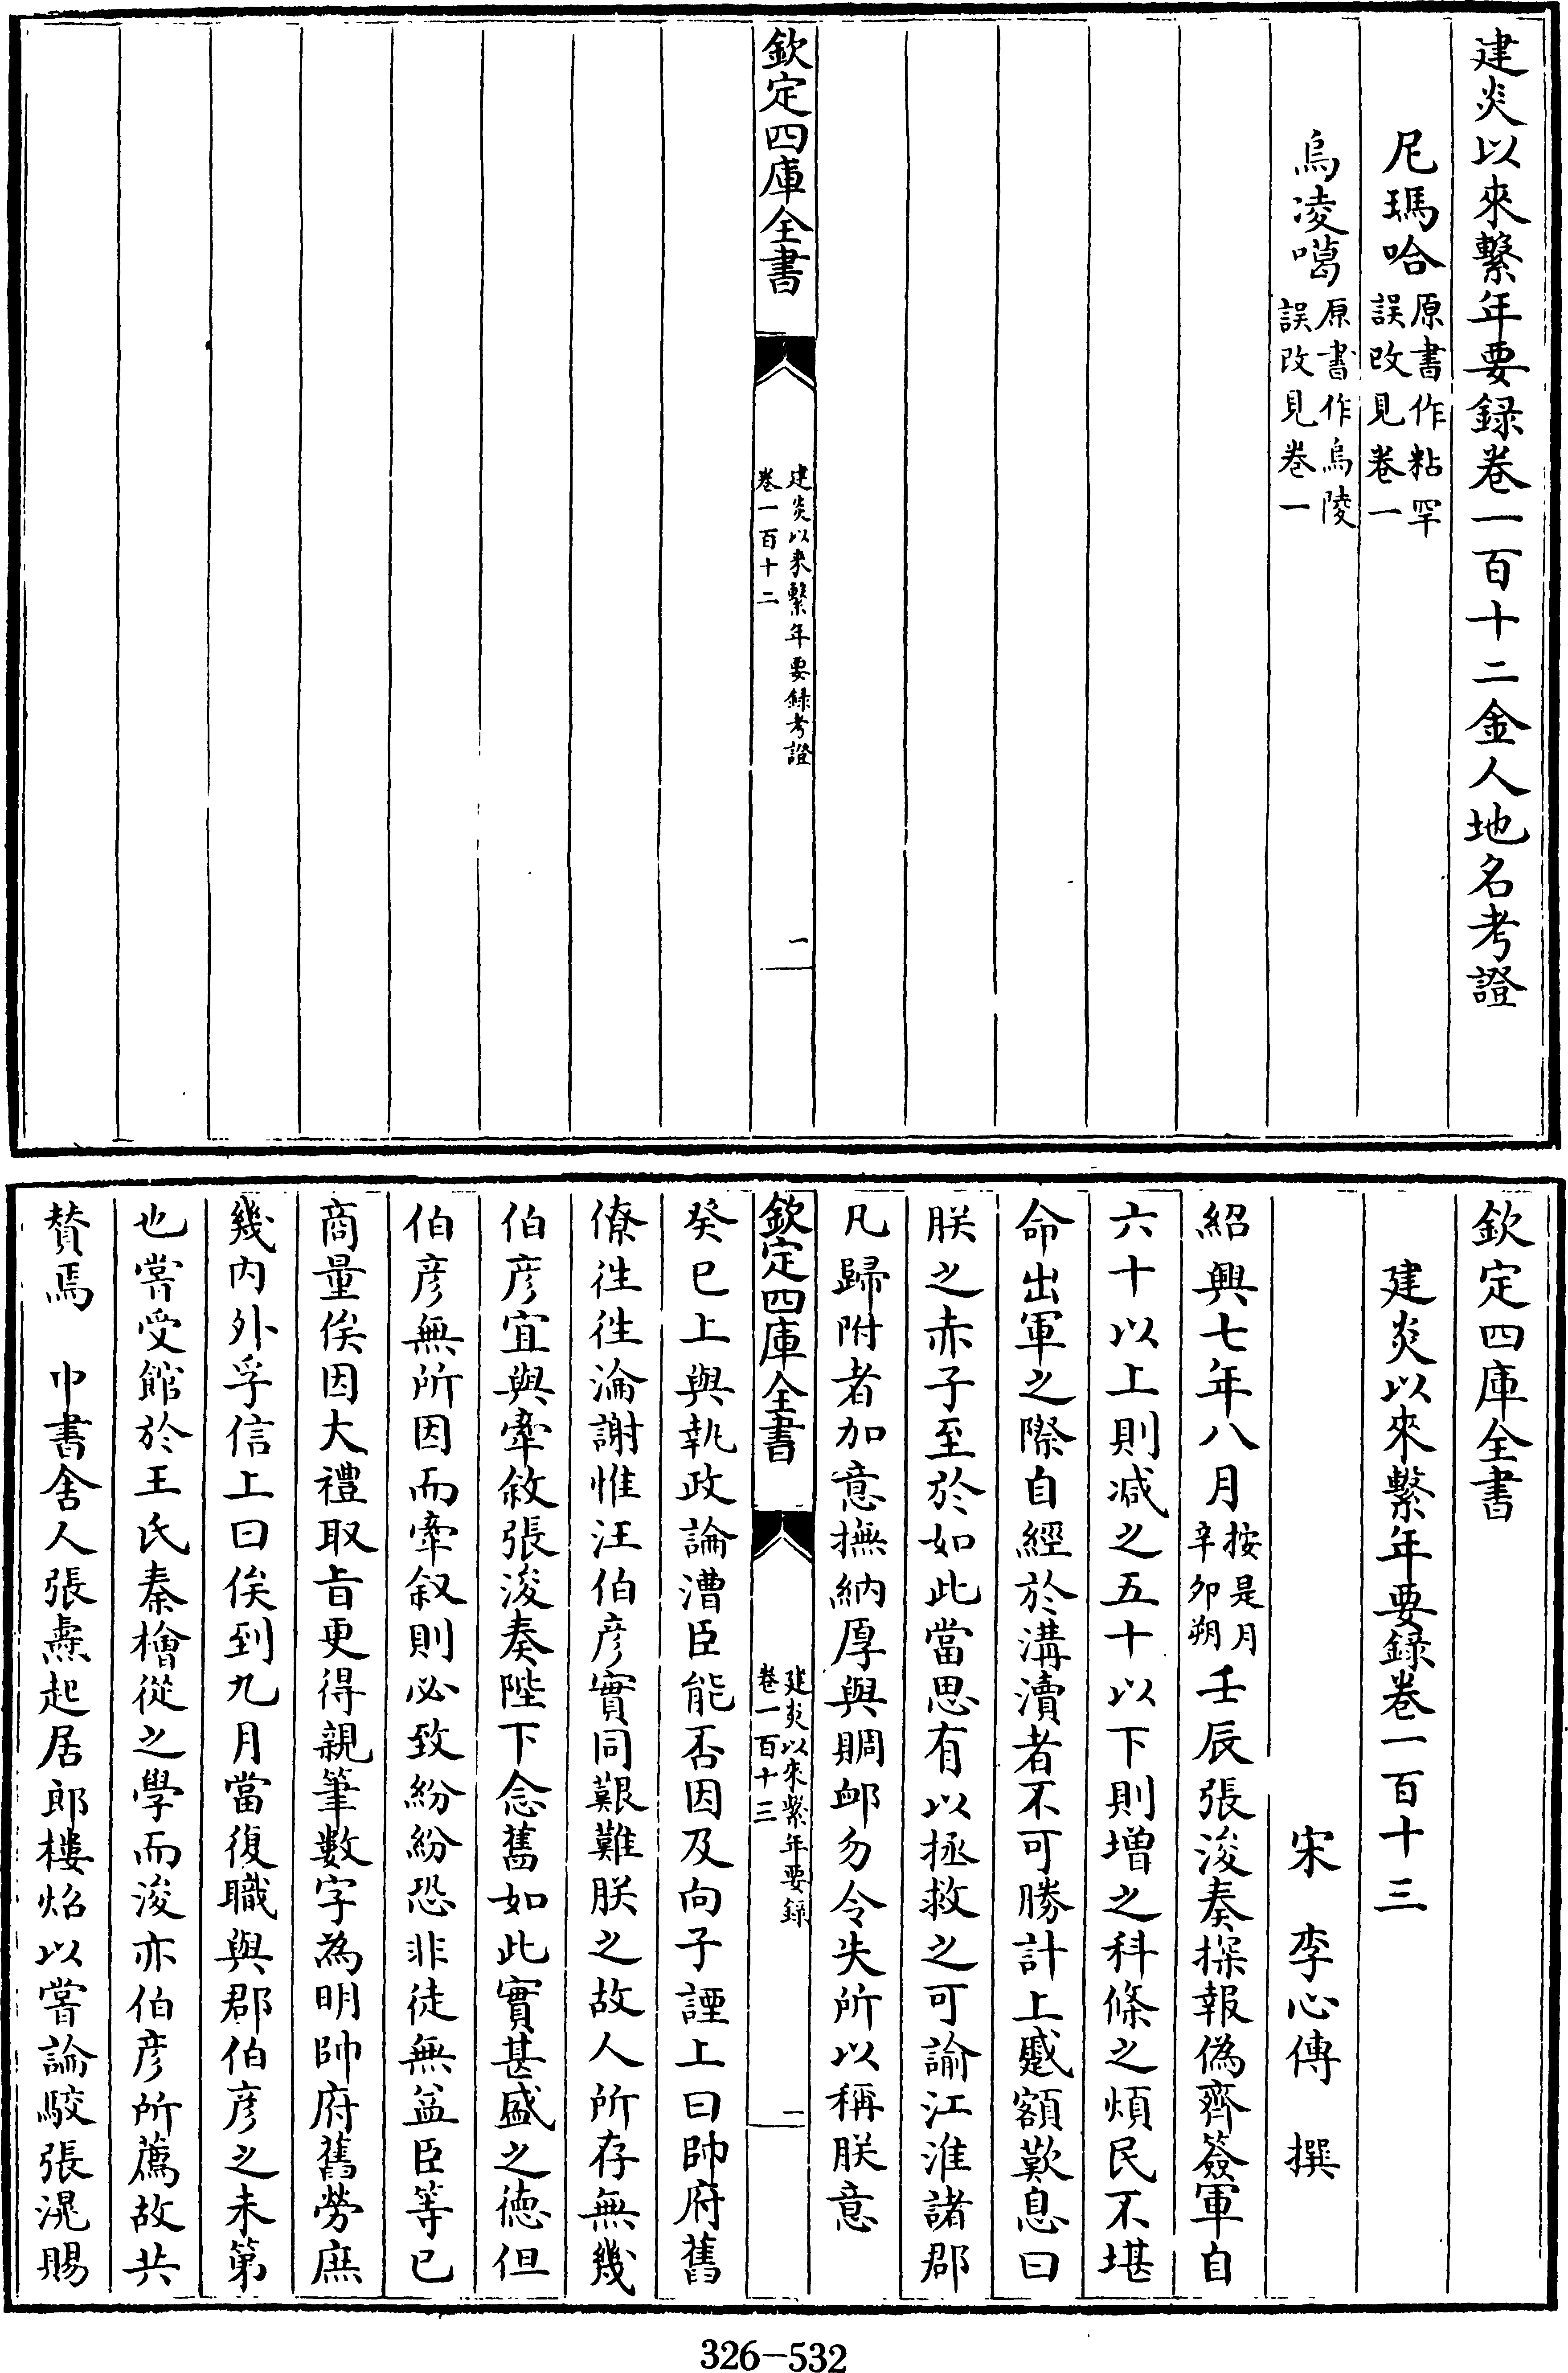 建炎以來繫年要録卷一百十二金人地名考證
尼瑪哈原書作粘罕誤改見卷一
烏凌噶原書作烏陵誤改見卷一
欽定四庫全書
建炎以來繫年要録考證
卷一百十二
一
欽定四庫全書
建炎以來繫年要録卷一百十三
宋 李心傳 撰
紹興七年八月按是月辛卯朔壬辰張浚奏探報偽齊簽軍自
六十以上則減之五十以下則增之科條之煩民不堪
命出軍之際自經於溝瀆者不可勝計上蹙額歎息曰
朕之赤子至於如此當思有以拯救之可諭江淮諸郡
凡歸附者加意撫納厚與賙䘏勿令失所以稱朕意
欽定四庫全書
建炎以來繫年要録
卷一百十三
一
癸巳上與執政論漕臣能否因及向子諲上曰帥府舊
僚徃徃淪謝惟汪伯彦實同艱難朕之故人所存無幾
伯彦宜與牽敘張浚奏陛下念舊如此實甚盛之徳但
伯彦無所因而牽叙則必致紛紛恐非徒無益臣等已
商量俟因大禮取旨更得親筆數字為明帥府舊勞庶
幾内外孚信上曰俟到九月當復職與郡伯彦之未第
也嘗受館於王氏秦檜從之學而浚亦伯彦所薦故共
賛焉 中書舍人張燾起居郎樓炤以嘗論駮張滉賜
326-532